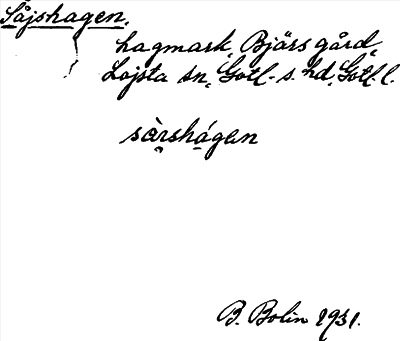 Såjshagen.
hagmark, Bjärs gård,
Lojsta sn, Gotl. s. hd, Gotl. l.
sàrshágen
B. Bolin 1931.